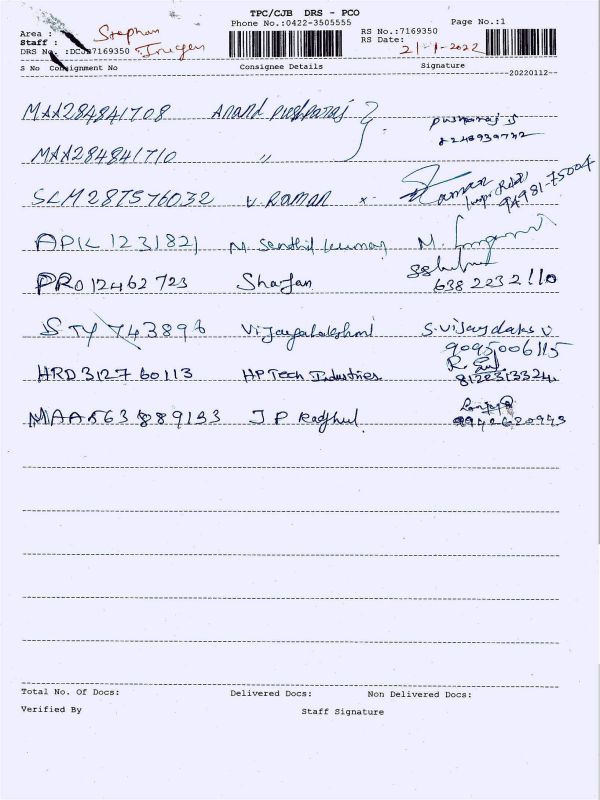 TPC/CJB DRS - PCO
Phone No.:0422-3505555
Page No.:1
Area : Stephan
Staff :
RS No.:7169350
RS Date: 21-1-2022
DRS No :DCJB7169350
S No Consignment No Consignee Details Signature
--20220112--
MAA284841708 Anand pushparaj
pushparaj s
MAA284841710 "
SLM287576032 V. Raman x. Raman
94981-75004
APK1231821 M. Senthil kumar M.
PRO12462723 Sharfan
638 2232110
STY 743896 Vijayalakshmi S.Vijay
9095006115
HRD3127 60113 HP Tech Industries
8122313324
MAA563889193 J P Raghul
9942620943
Total No. Of Docs: Delivered Docs: Non Delivered Docs:
Verified By Staff Signature